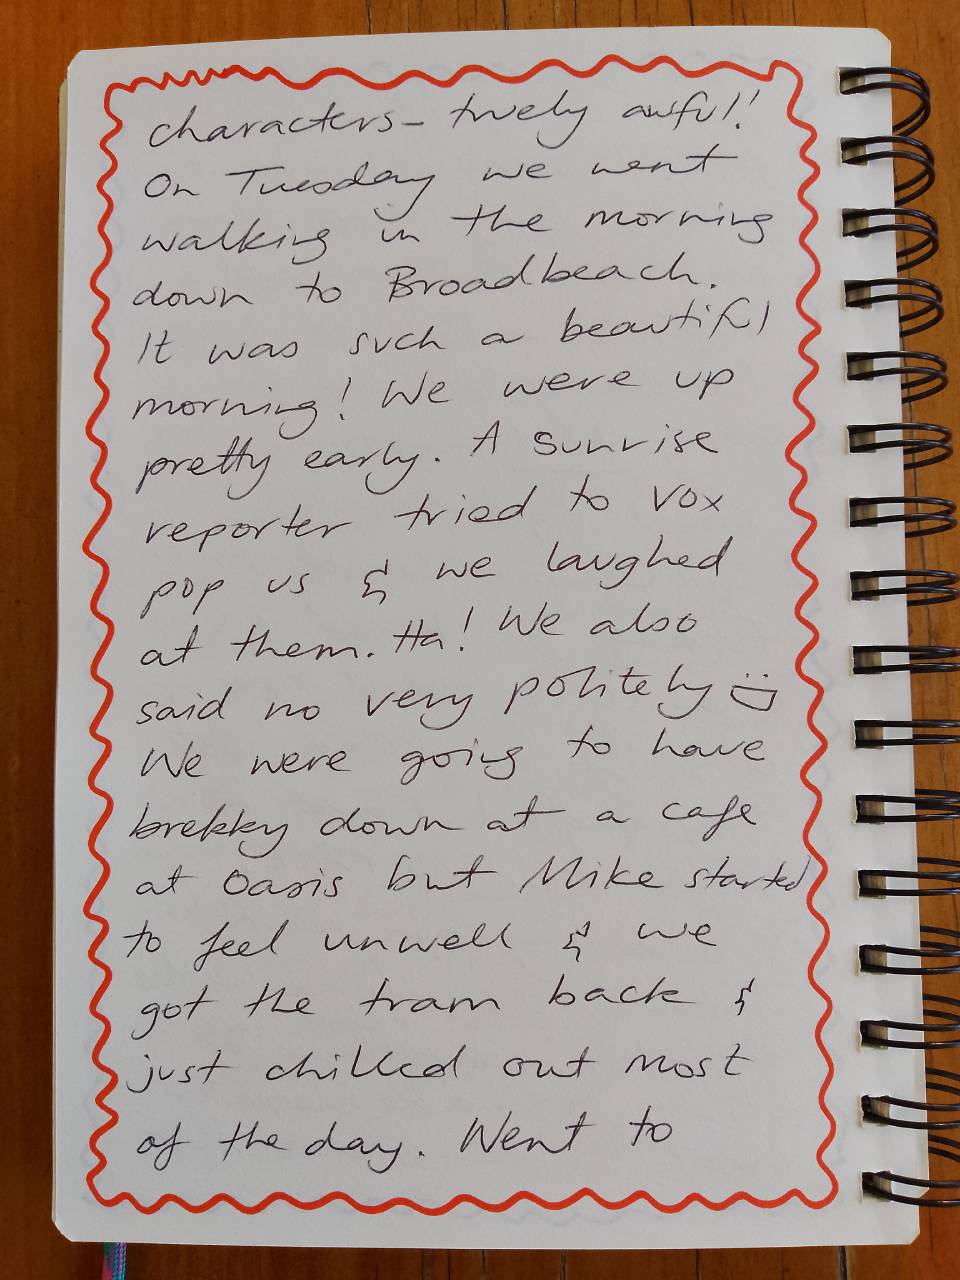 characters - truely awful!
On Tuesday we went
walking in the morning
down to Broadbeach.
It was such a beautiful
morning! We were up
pretty early. A sunrise
reporter tried to vox
pop us & we laughed
at them. Ha! We also
said no very politely
We were going to have
brekky down at a cafe
at Oasis but Mike started
to feel unwell & we
got the tram back &
just chilled out most
of the day. Went to